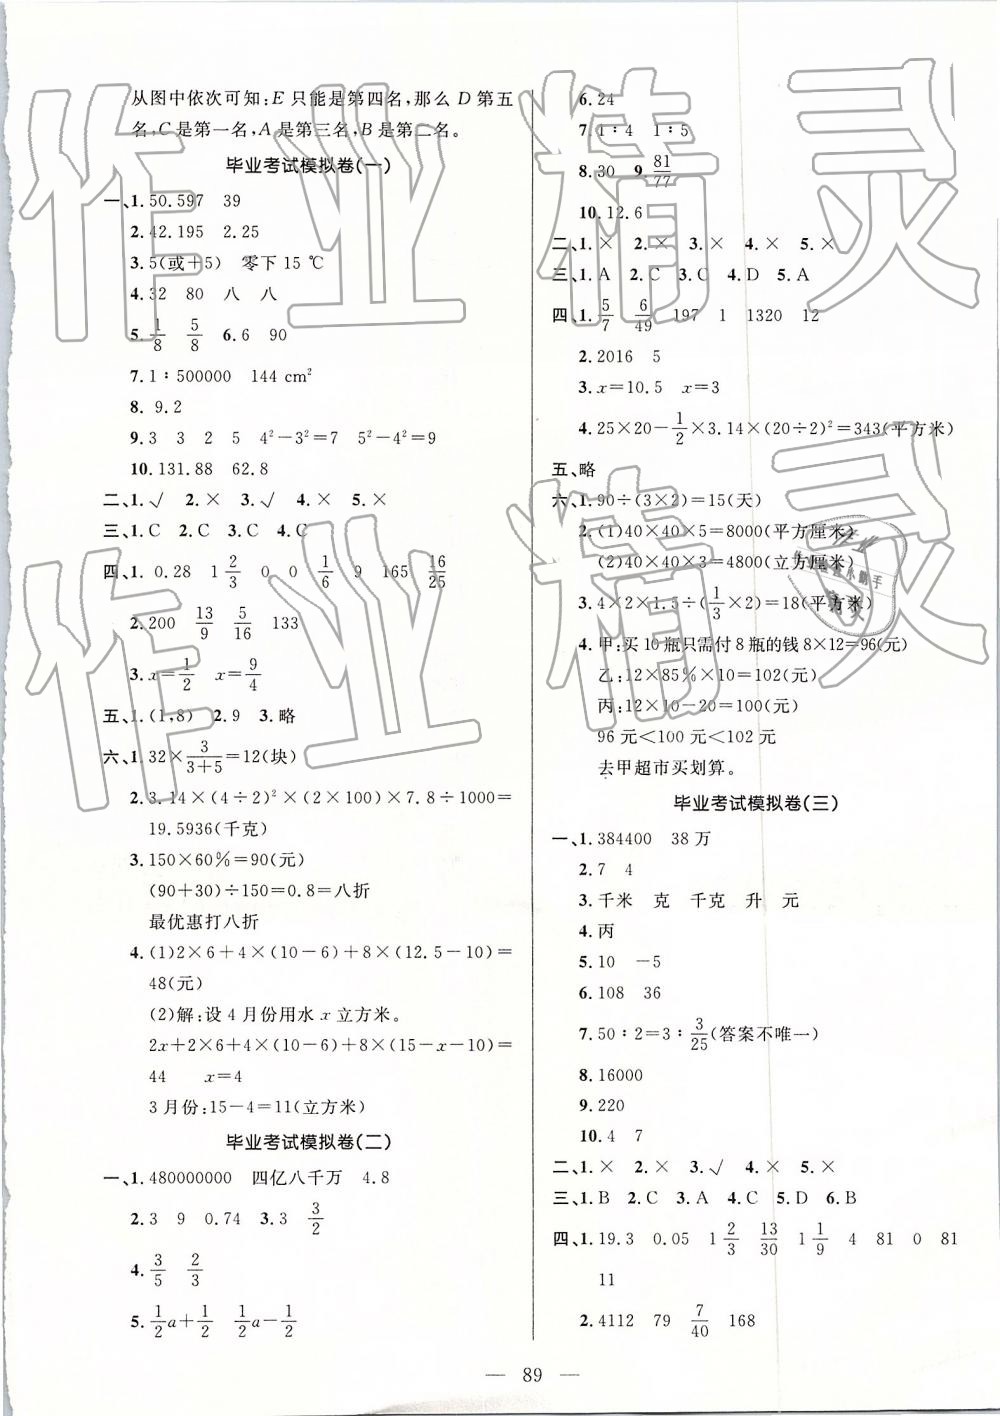 从图中依次可知:E 只能是第四名,那么 D 第五
名,C 是第一名,A 是第三名,B 是第二名。
毕业考试模拟卷(一)
一、1.50.597 39
2.42.195 2.25
3.5(或+5) 零下 15 ℃
4.32 80 八 八
5.1/8 5/8 6.6 90
7.1∶500000 144 cm²
8. 9.2
9.3 3 2 5 4²-3²=7 5²-4²=9
10.131.88 62.8
二、1.√ 2.× 3.√ 4.× 5.×
三、1.C 2.C 3.C 4.C
四、1. 0.28 1 2/3 0 0 1/6 9 165 16/25
2.200 13/9 5/16 133
3.x=1/2 x=9/4
五、1.(1,8) 2.9 3.略
六、1.32×3/(3+5)=12(块)
2.3.14×(4÷2)²×(2×100)×7.8÷1000=
19.5936(千克)
3.150×60%=90(元)
(90+30)÷150=0.8=八折
最优惠打八折
4.(1)2×6+4×(10-6)+8×(12.5-10)=
48(元)
(2)解:设 4 月份用水 x 立方米。
2x+2×6+4×(10-6)+8×(15-x-10)=
44 x=4
3 月份:15-4=11(立方米)
毕业考试模拟卷(二)
一、1.480000000 四亿八千万 4.8
2.3 9 0.74 3.3 3/2
4.3/5 2/3
5.1/2a+1/2 1/2a-1/2
6.24
7.1∶4 1∶5
8.30 9.81/77
10.12.6
二、1.× 2.× 3.× 4.× 5.×
三、1.A 2.C 3.C 4.D 5.A
四、1.5/7 6/49 197 1 1320 12
2.2016 5
3.x=10.5 x=3
4.25×20-1/2×3.14×(20÷2)²=343(平方米)
五、略
六、1.90÷(3×2)=15(天)
2.(1)40×40×5=8000(平方厘米)
(2)40×40×3=4800(立方厘米)
3.4×2×1.5÷(1/3×2)=18(平方米)
4.甲:买 10 瓶只需付 8 瓶的钱 8×12=96(元)
乙:12×85%×10=102(元)
丙:12×10-20=100(元)
96 元<100 元<102 元
去甲超市买划算。
毕业考试模拟卷(三)
一、1.384400 38 万
2.7 4
3.千米 克 千克 升 元
4.丙
5.10 -5
6.108 36
7.50∶2=3∶3/25(答案不唯一)
8.16000
9.220
10.4 7
二、1.× 2.× 3.√ 4.× 5.×
三、1.B 2.C 3.A 4.C 5.D 6.B
四、1.19.3 0.05 1 2/3 13/30 1 1/9 4 81 0 81
11
2.4112 79 7/40 168
— 89 —
作业精灵
作业精灵